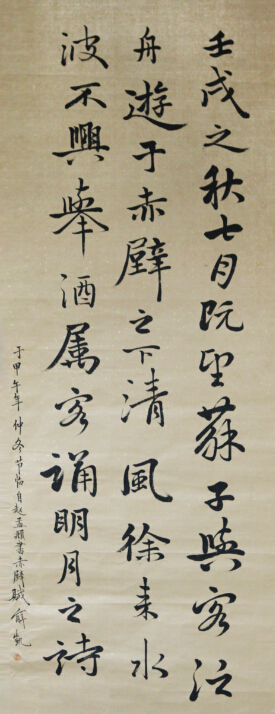 壬戌之秋七月既望蘇子與客泛
舟遊于赤壁之下清風徐来水
波不興舉酒属客誦明月之詩
于甲午年仲冬节临自赵孟頫書赤壁賦俞凱